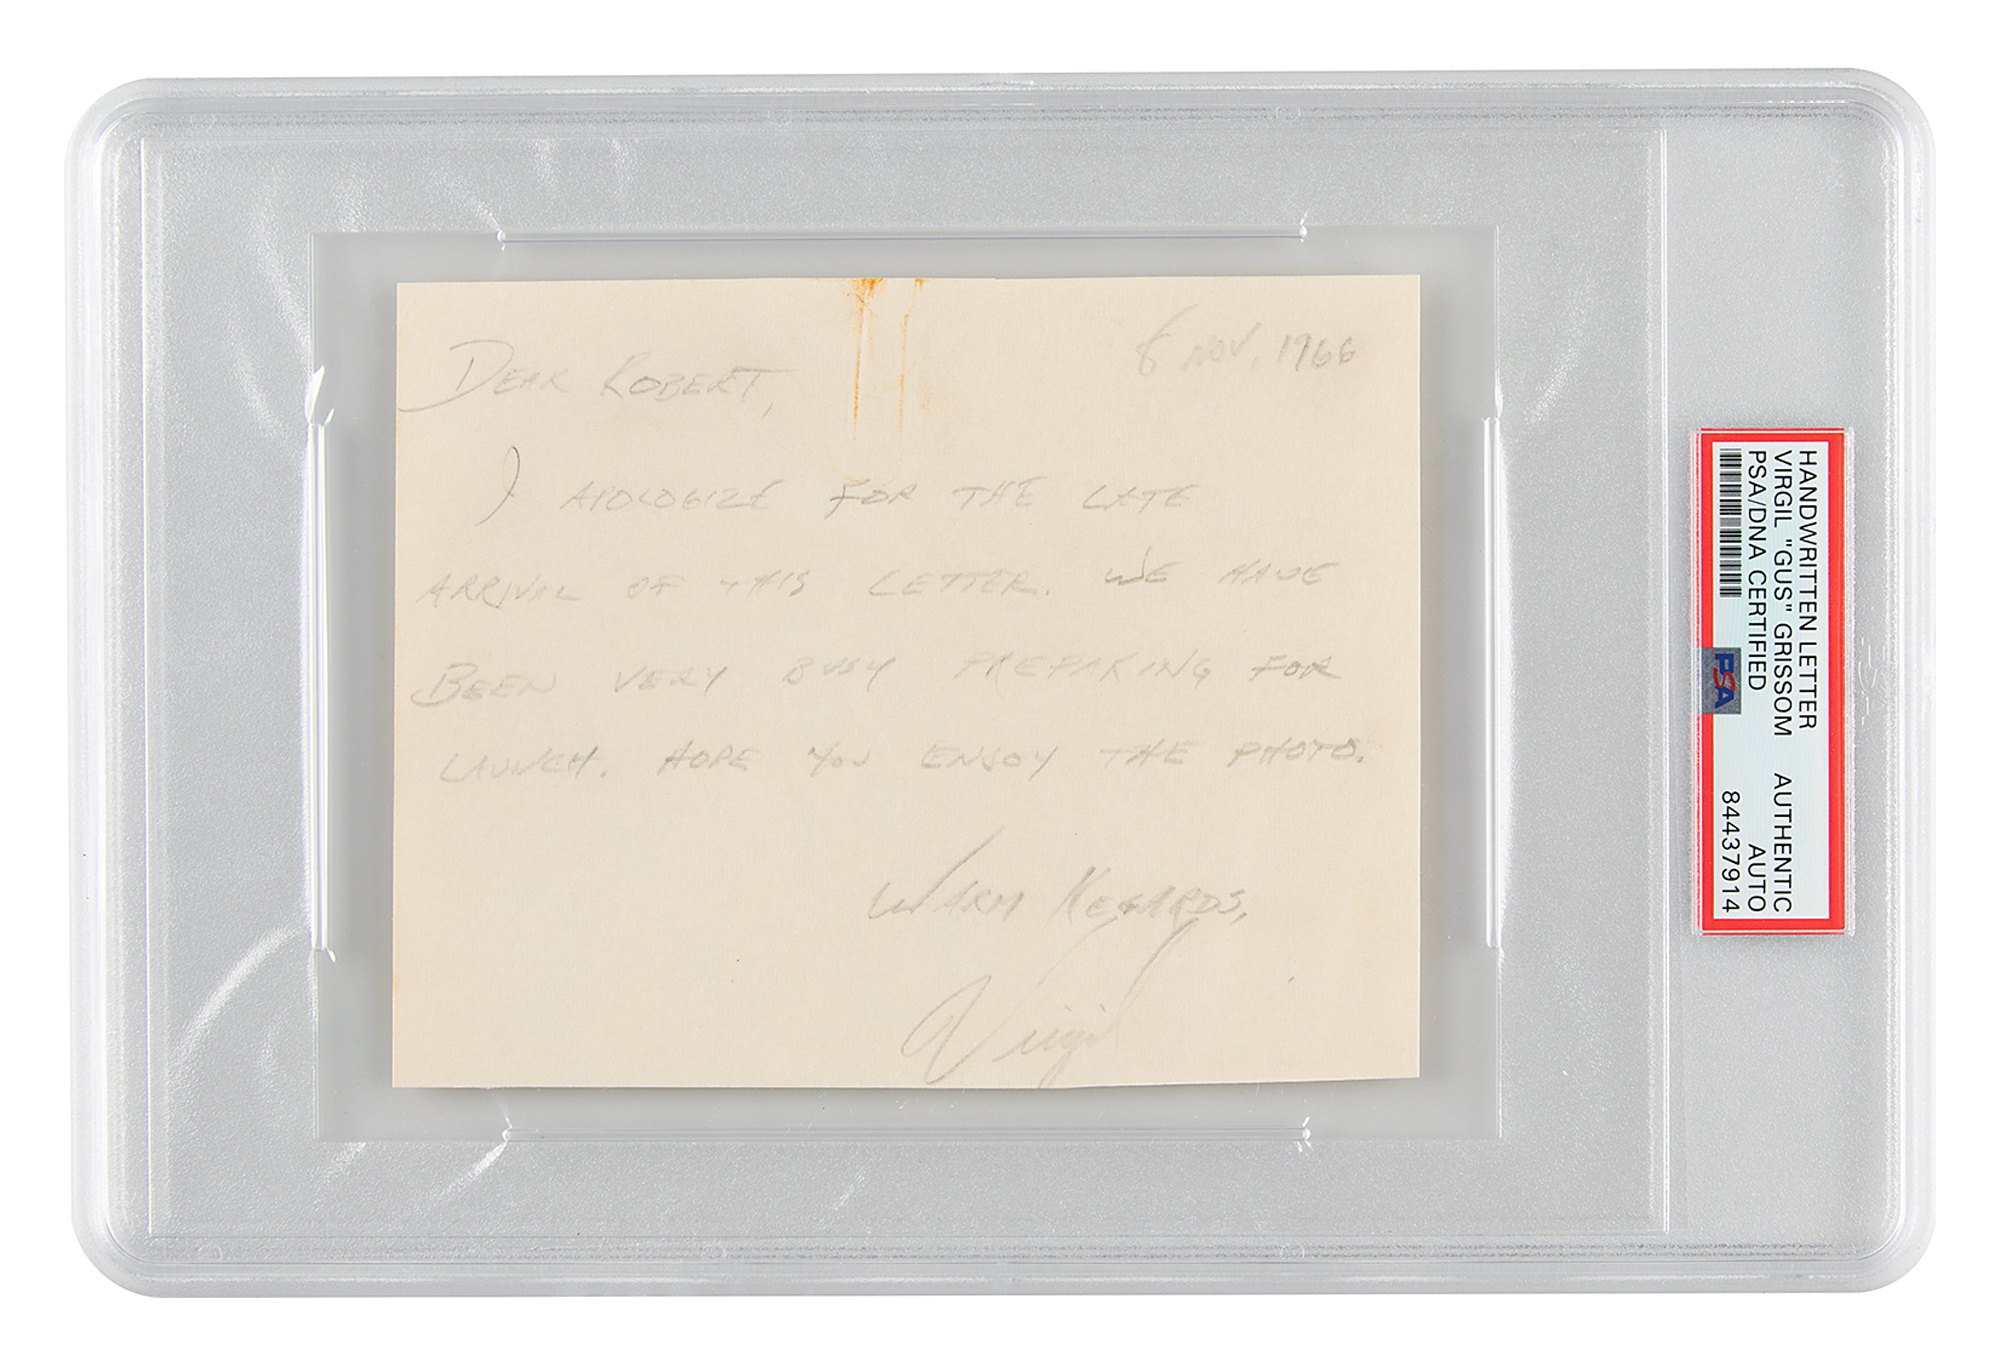 8 NOV. 1966
DEAR ROBERT,
I APOLOGIZE FOR THE LATE
ARRIVAL OF THIS LETTER. WE HAVE
BEEN VERY BUSY PREPARING FOR
LAUNCH. HOPE YOU ENJOY THE PHOTO.
WARM REGARDS,
Virgil
HANDWRITTEN LETTER
VIRGIL "GUS" GRISSOM AUTHENTIC
PSA/DNA CERTIFIED AUTO
84437914
PSA